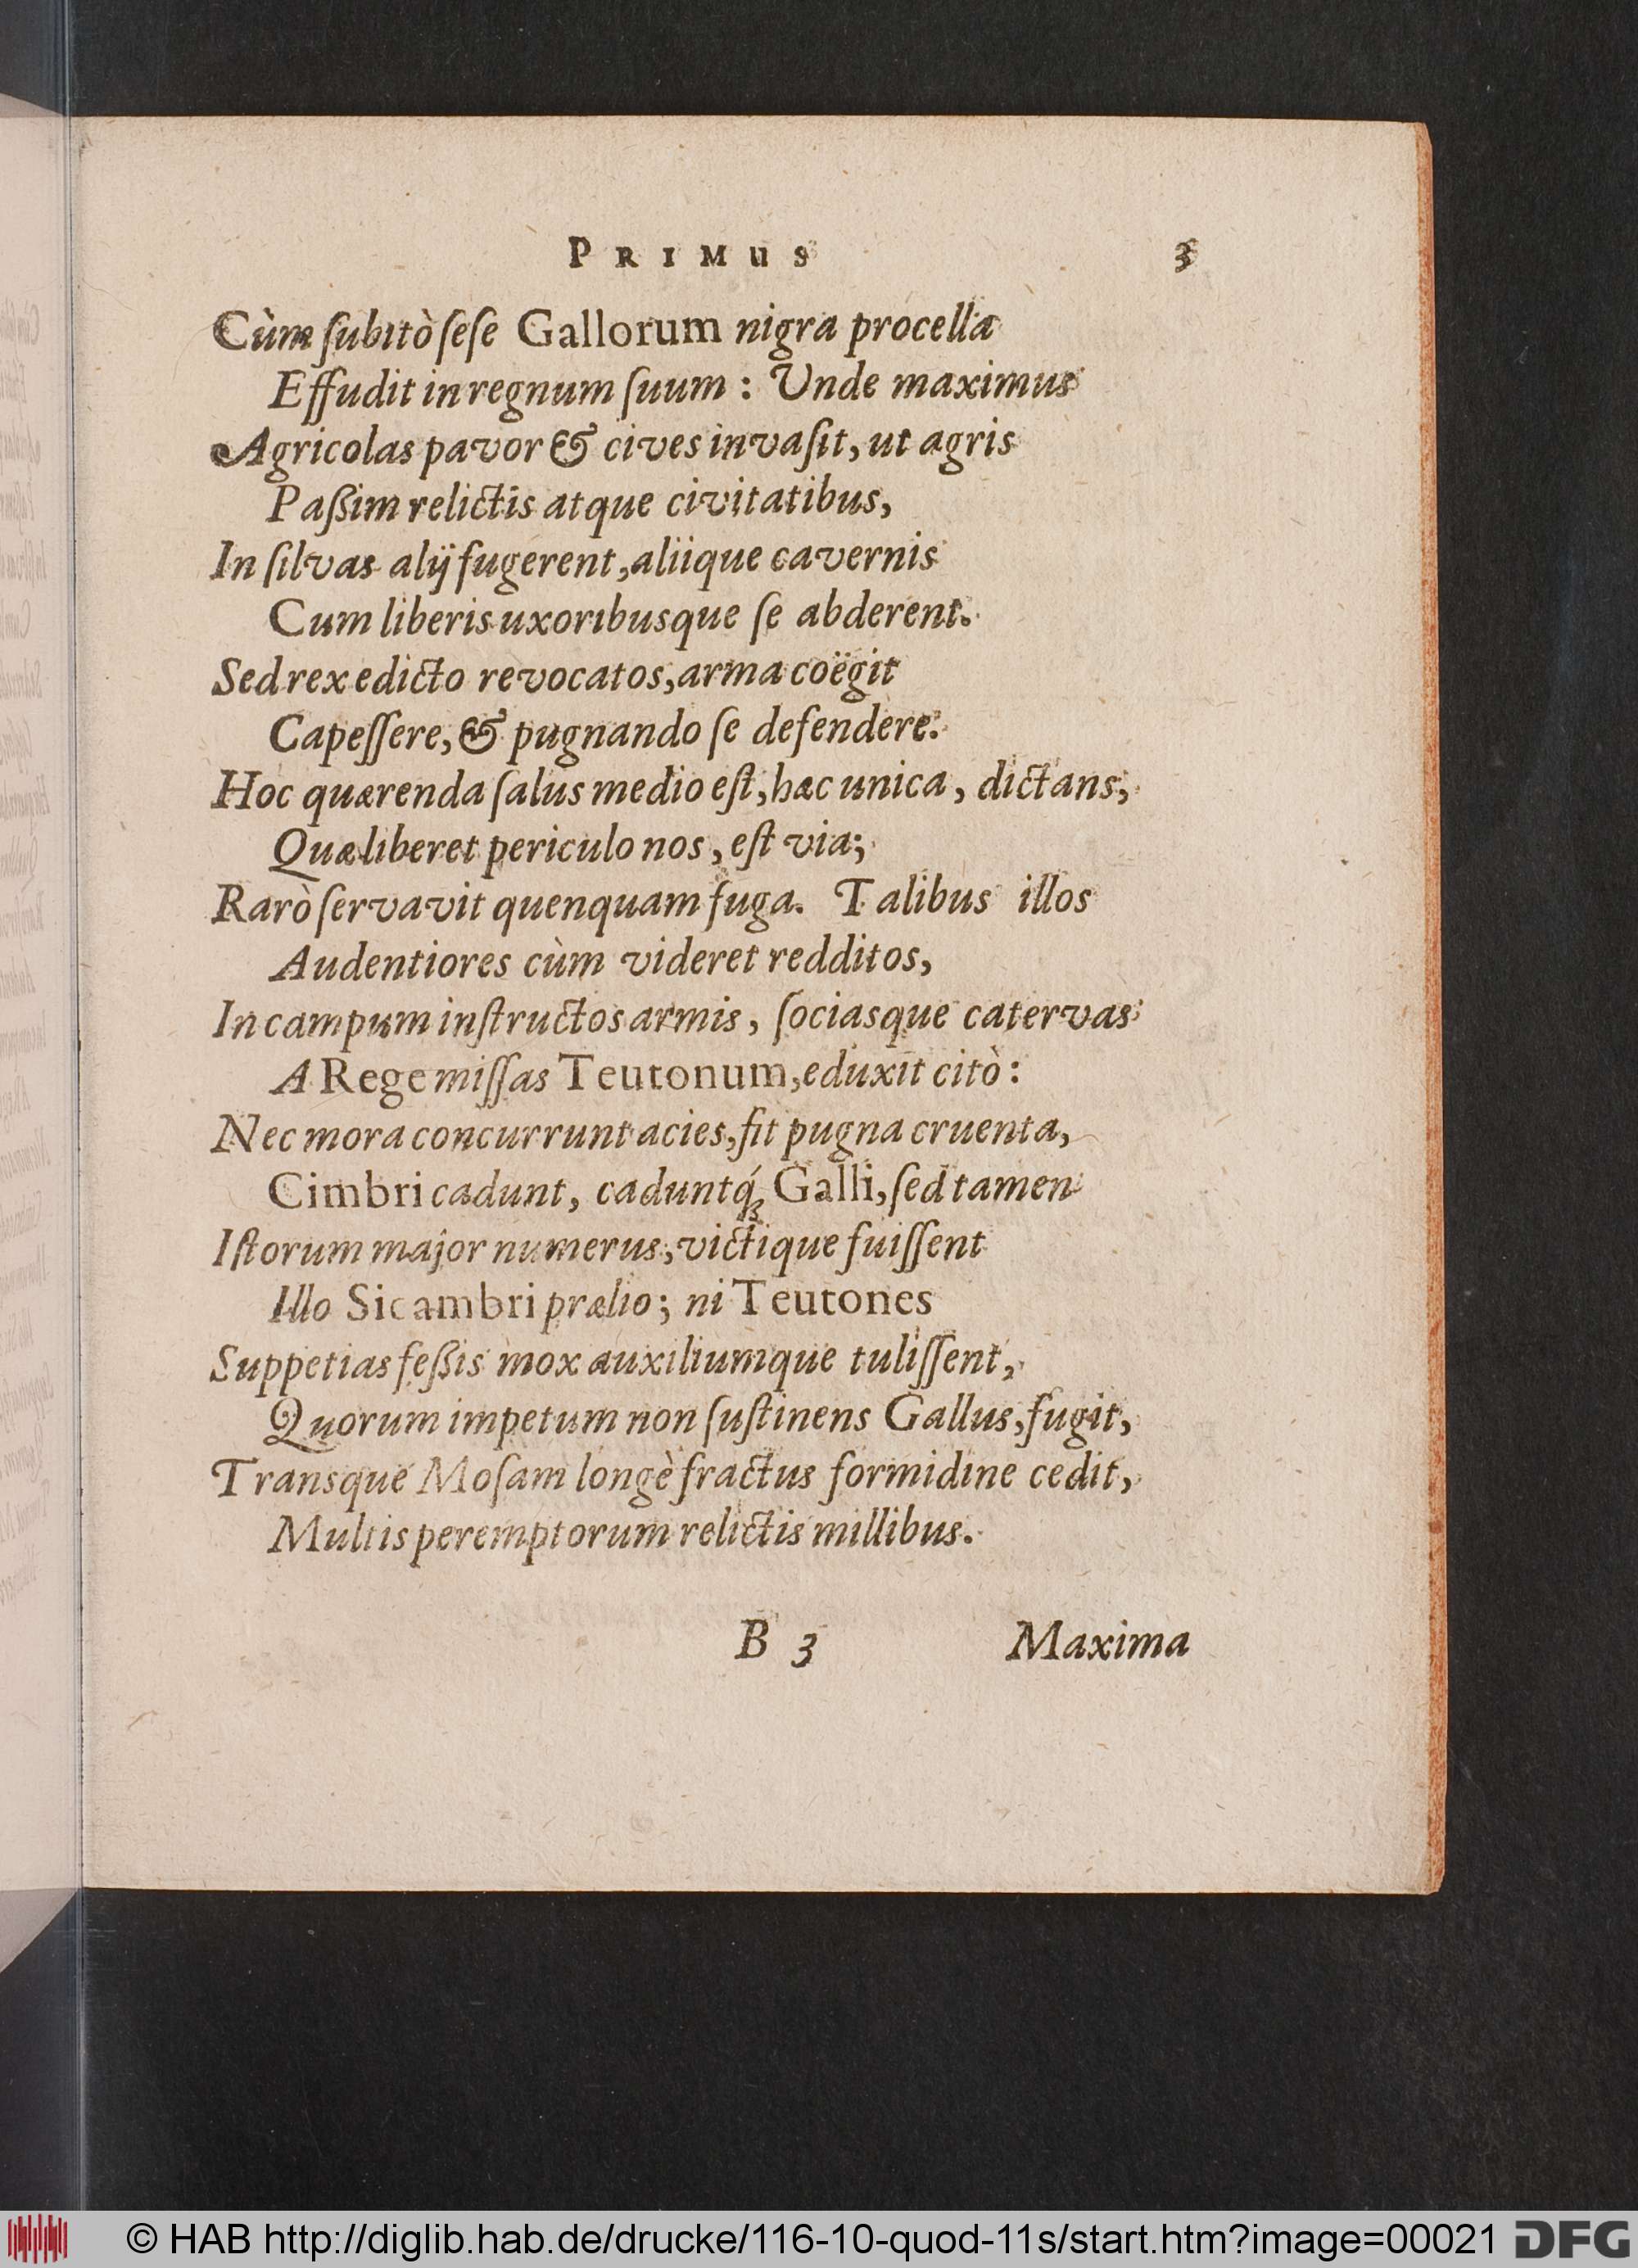 PRIMUS 3
Cùm ſubitò ſeſe Gallorum nigra procella
Effudit in regnum ſuum : Unde maximus
Agricolas pavor & cives invaſit, ut agris
Paßim relictis atque civitatibus,
In ſilvas alij fugerent, aliique cavernis
Cum liberis uxoribusque ſe abderent.
Sed rex edicto revocatos, arma coëgit
Capeſſere, & pugnando ſe defendere.
Hoc quærenda ſalus medio eſt, hæc unica, dictans,
Quæ liberet periculo nos, eſt via;
Rarò ſervavit quenquam fuga. Talibus illos
Audentiores cùm videret redditos,
In campum inſtructos armis, ſociasque catervas
A Rege miſſas Teutonum, eduxit citò :
Nec mora concurrunt acies, fit pugna cruenta,
Cimbri cadunt, caduntq́ꝫ Galli, ſed tamen
Iſtorum major numerus, victique fuiſſent
Illo Sicambri prælio; ni Teutones
Suppetias feßis mox auxiliumque tuliſſent,
Quorum impetum non ſuſtinens Gallus, fugit,
Transque Moſam longè fractus formidine cedit,
Multis peremptorum relictis millibus.
B 3 Maxima
© HAB http://diglib.hab.de/drucke/116-10-quod-11s/start.htm?image=00021 DFG